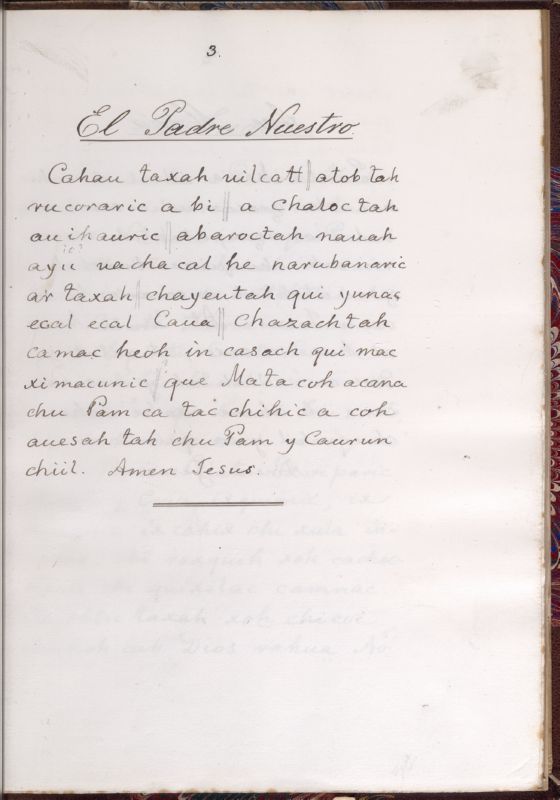 3.
El Padre Nuestro
Cahau taxah vilcatt || atob tah
ru coraric a bi || a Chaloc tah
au ihauric || abaroctah nauah
it?
ayu uacha cal he narubanaric
ar taxah || chayeutah qui yunas
ecal ecal Caua || Chazach tah
camac heoh in casach qui mac
ximacunic || que Mata coh acana
chu Pam ca tac chihic a coh
auesah tah chu Pam y Caurun
chiil. Amen Jesus.